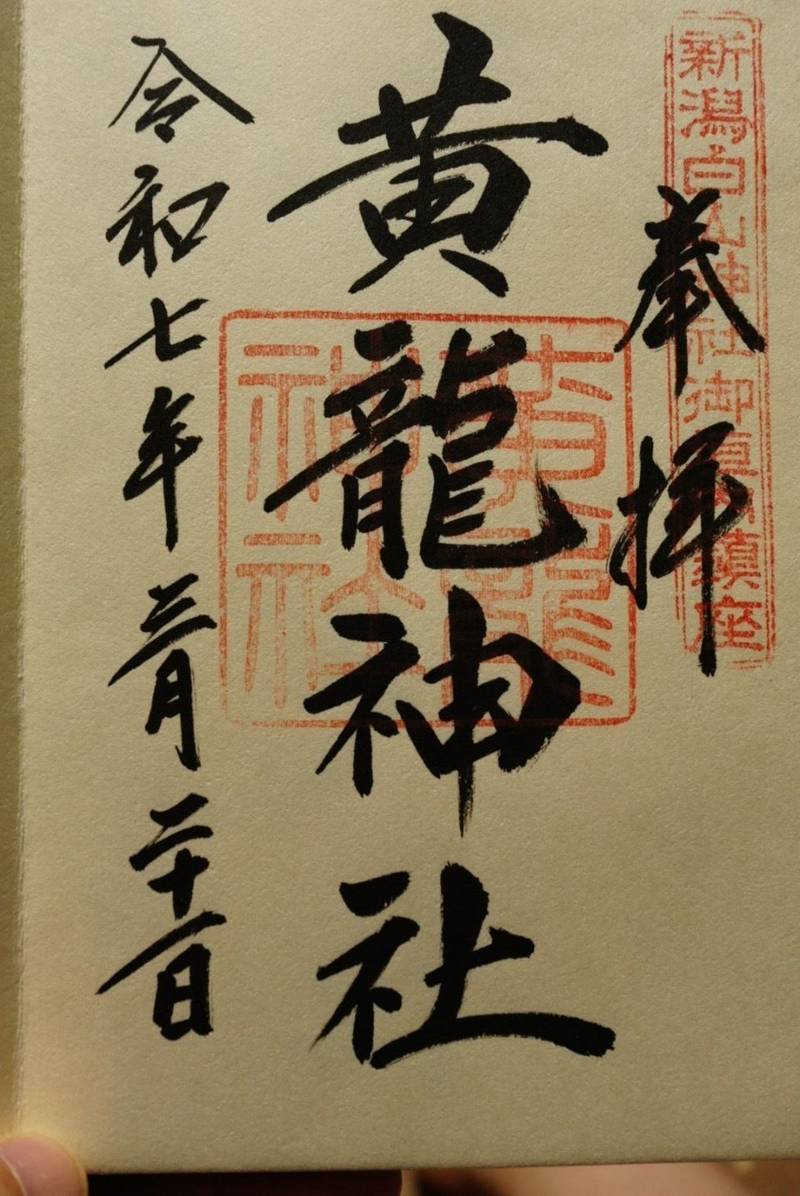 新潟白山神社御 鎮座
奉拝
黄龍神社
黄龍神社
令和七年三月二十一日